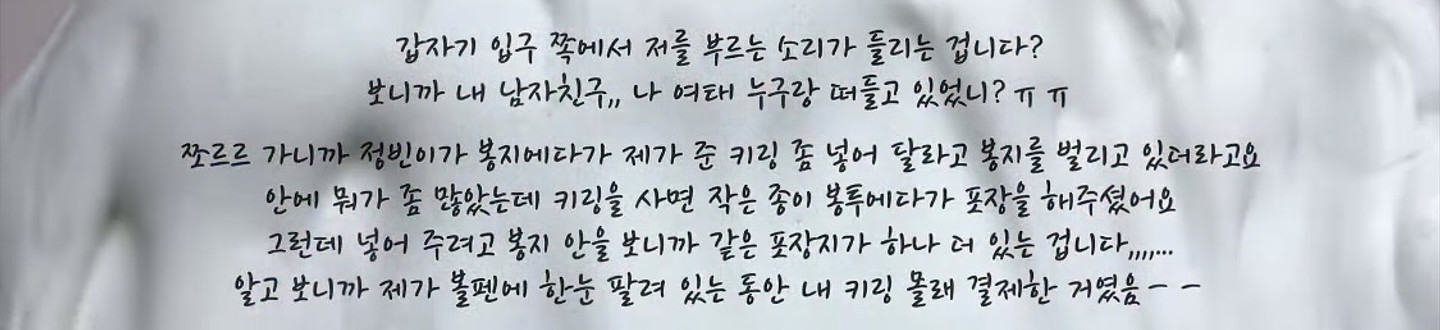 갑자기 입구 쪽에서 저를 부르는 소리가 들리는 겁니다?
보니까 내 남자친구,, 나 여태 누구랑 떠들고 있었니? ㅠ ㅠ
쪼르르 가니까 정빈이가 봉지에다가 제가 준 키링 좀 넣어 달라고 봉지를 벌리고 있더라고요
안에 뭐가 좀 많았는데 키링을 사면 작은 종이 봉투에다가 포장을 해주셨어요
그런데 넣어 주려고 봉지 안을 보니까 같은 포장지가 하나 더 있는 겁니다,,,,...
알고 보니까 제가 볼펜에 한눈 팔려 있는 동안 내 키링 몰래 결제한 거였음 - -